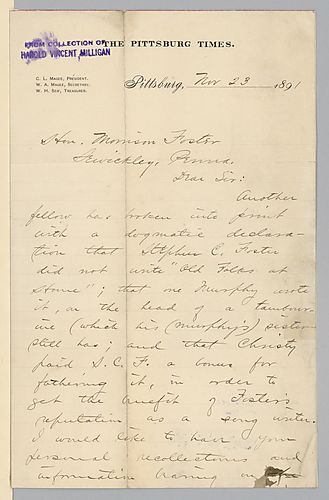 FROM COLLECTION OF
HAROLD VINCENT MILLIGAN
THE PITTSBURG TIMES.
C. L. MAGEE, PRESIDENT.
W. A. MAGEE, SECRETARY.
W. H. SEIF, TREASURER.
Pittsburg, Nov 23 1891
Hon. Morrison Foster
Sewickley, Penna.
Dear Sir:
Another
fellow has broken into print
with a dogmatic declara-
tion that Stephen C. Foster
did not write "Old Folks at
Home"; that one Murphy wrote
it, on the head of a tambour-
ine (which his (Murphy's) sister
still has; and that Christy
paid S. C. F. a bonus for
fathering it, in order to
get the benefit of Foster's
reputation as a song writer.
I would like to have your
personal recollections and
information bearing on